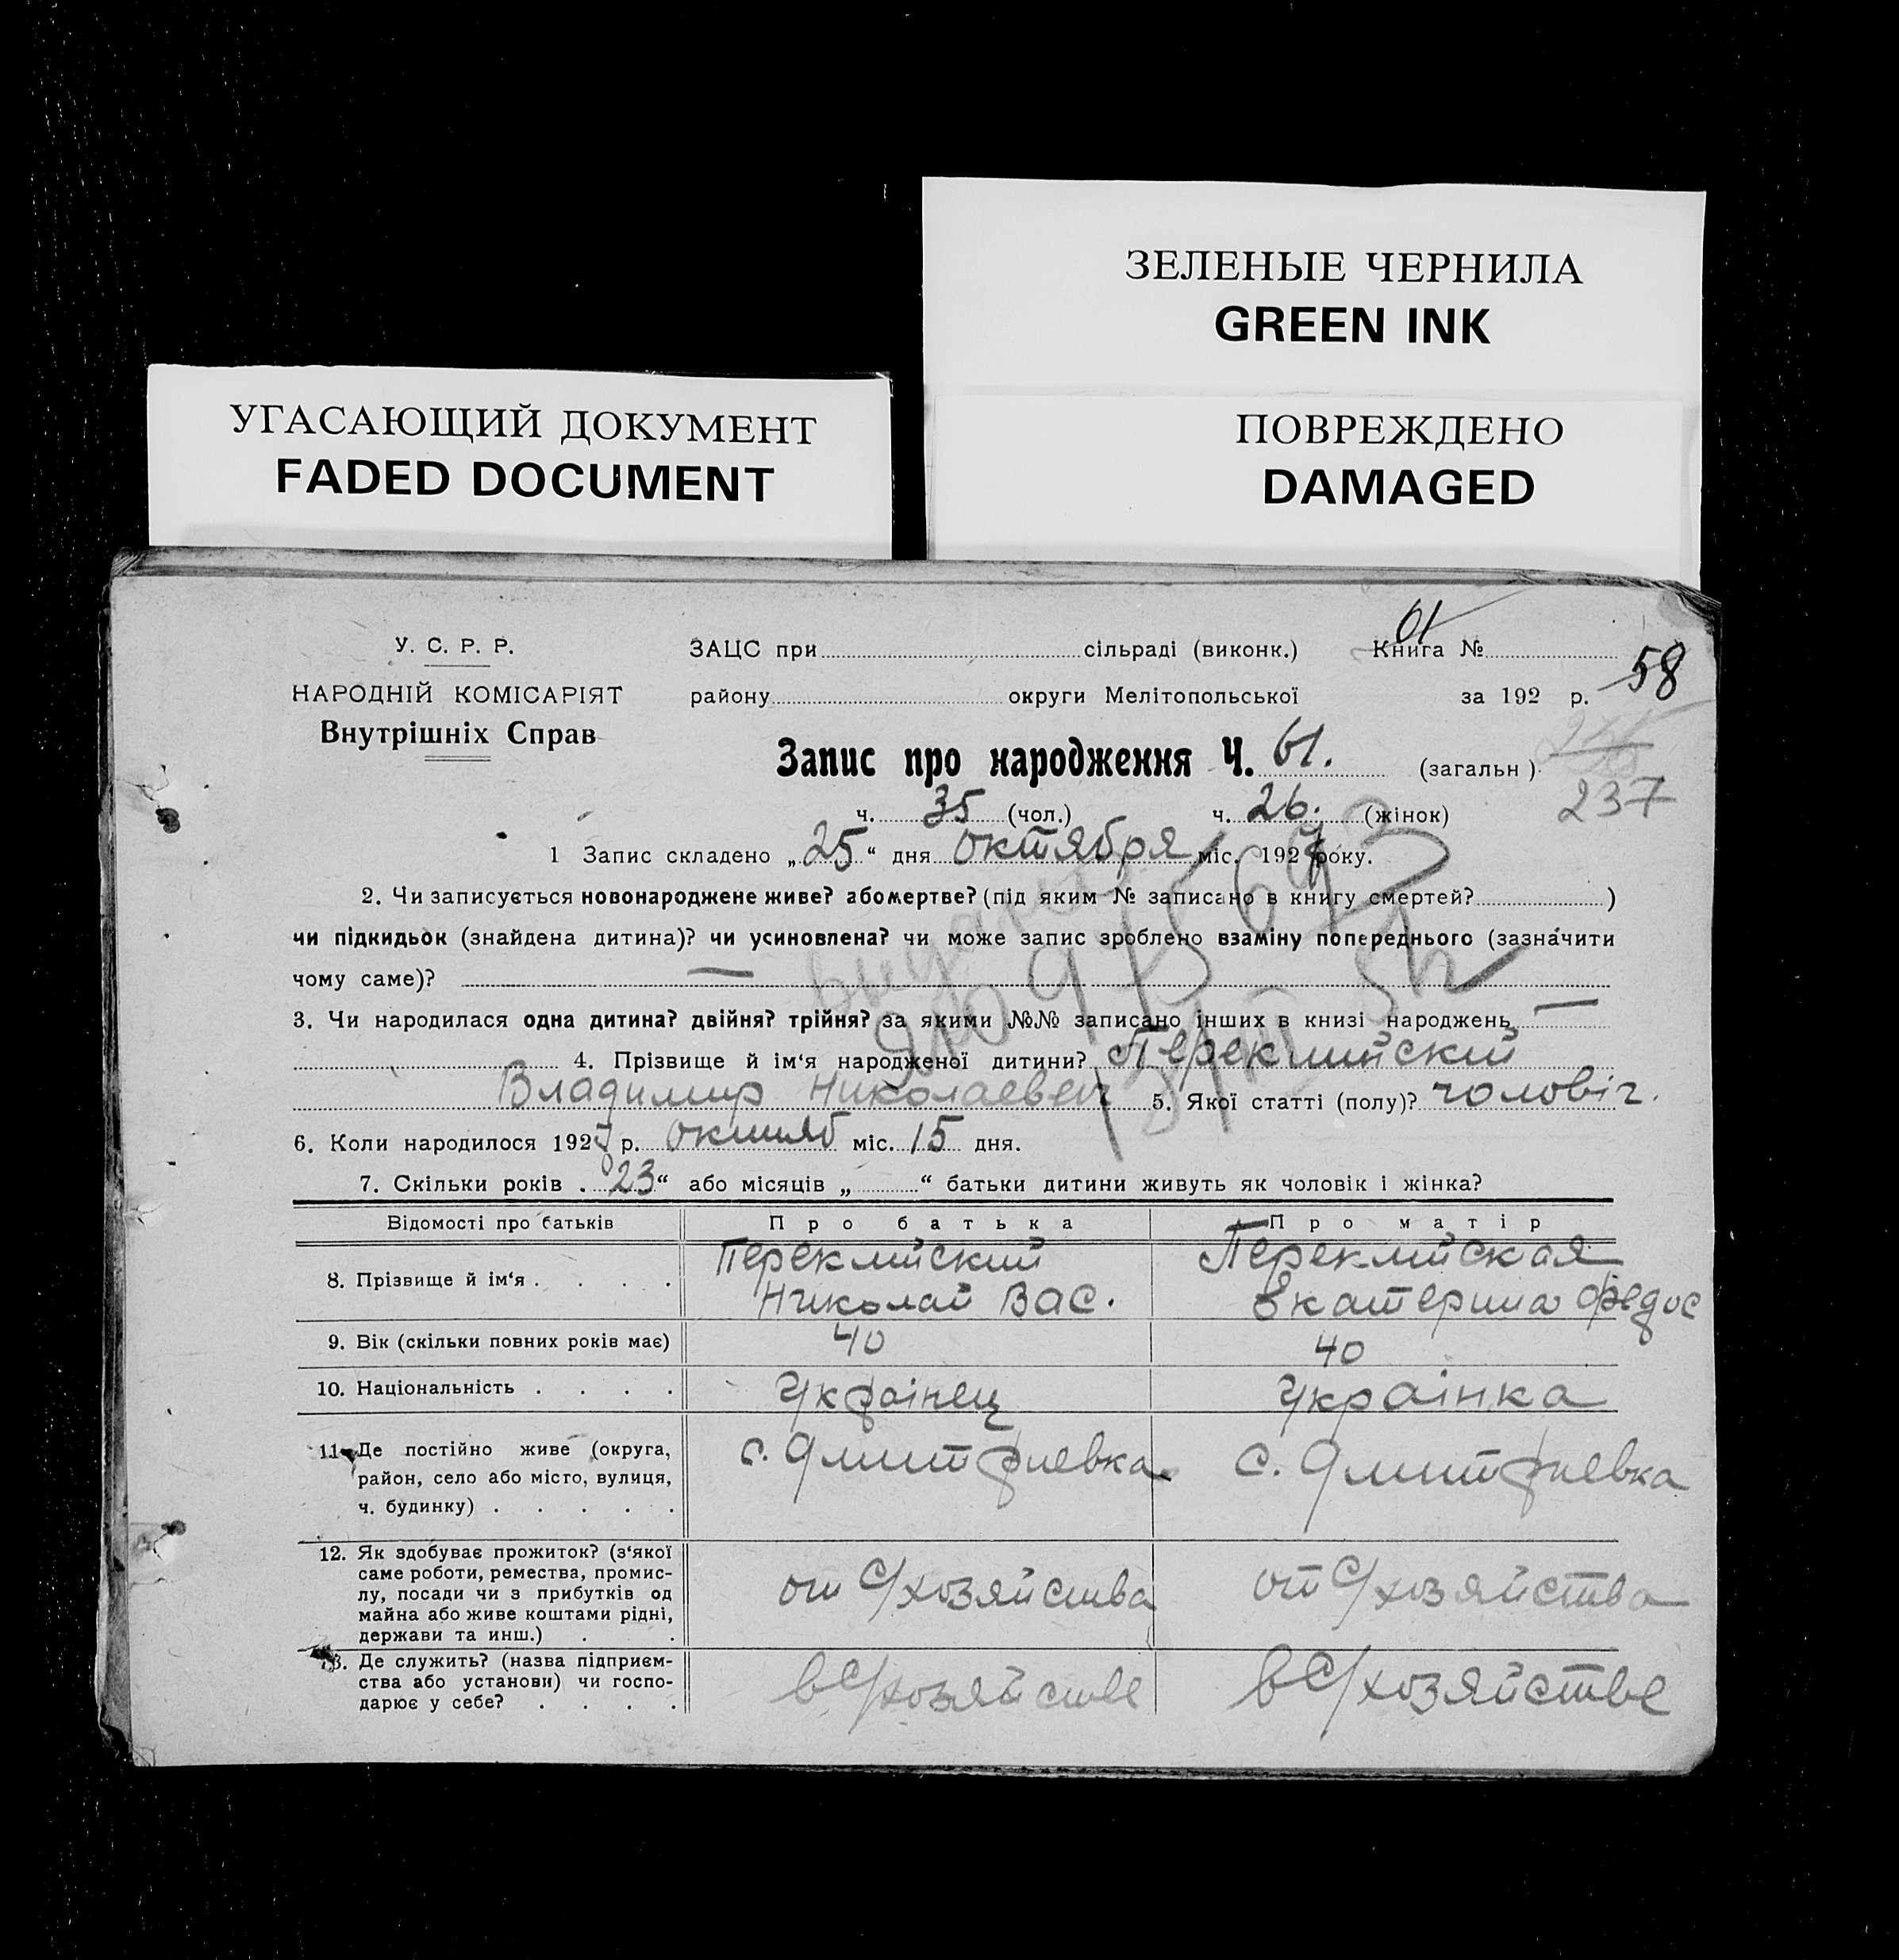 ЗЕЛЕНЫЕ ЧЕРНИЛА
GREEN INK
УГАСАЮЩИЙ ДОКУМЕНТ
FADED DOCUMENT
ПОВРЕЖДЕНО
DAMAGED
61
У. С. Р. Р.
ЗАЦС при сільраді (виконк.) Книга №
58
НАРОДНІЙ КОМІСАРІЯТ
району округи Мелітопольської за 192 р.
Внутрішніх Справ
Запис про народження Ч. 61. (загальн)
237
ч. 35 (чол.) ч. 26. (жінок)
1 Запис складено „25“ дня октября міс. 1927 року.
2. Чи записується новонароджене живе? або мертве? (під яким № записано в книгу смертей? )
чи підкидьок (знайдена дитина)? чи усиновлена? чи може запис зроблено взаміну попереднього (зазначити
чому саме)? —
3. Чи народилася одна дитина? двійня? трійня? за якими №№ записано інших в книзі народжень —
4. Прізвище й ім‘я народженої дитини? Переклийский
Владимир Николаевич 5. Якої статті (полу)? чоловіч.
6. Коли народилося 1927 р. октяб міс. 15 дня.
7. Скільки років „23“ або місяців „ “ батьки дитини живуть як чоловік і жінка?
Відомості про батьків Про батька Про матір
8. Прізвище й ім‘я . . . . Переклийский Николай Вас. Переклийская Екатерина Федос
9. Вік (скільки повних років має) 40 40
10. Національність . . . . Українец Українка
11. Де постійно живе (округа, район, село або місто, вулиця, ч. будинку) . . . . . с. Дмитриевка с. Дмитриевка
12. Як здобуває прожиток? (з‘якої саме роботи, ремества, промислу, посади чи з прибутків од майна або живе коштами рідні, держави та инш.) . . от с/хозяйства от с/хозяйства
13. Де служить? (назва підприємства або установи) чи господарює у себе? . . . . в с/хозяйстве в с/хозяйстве